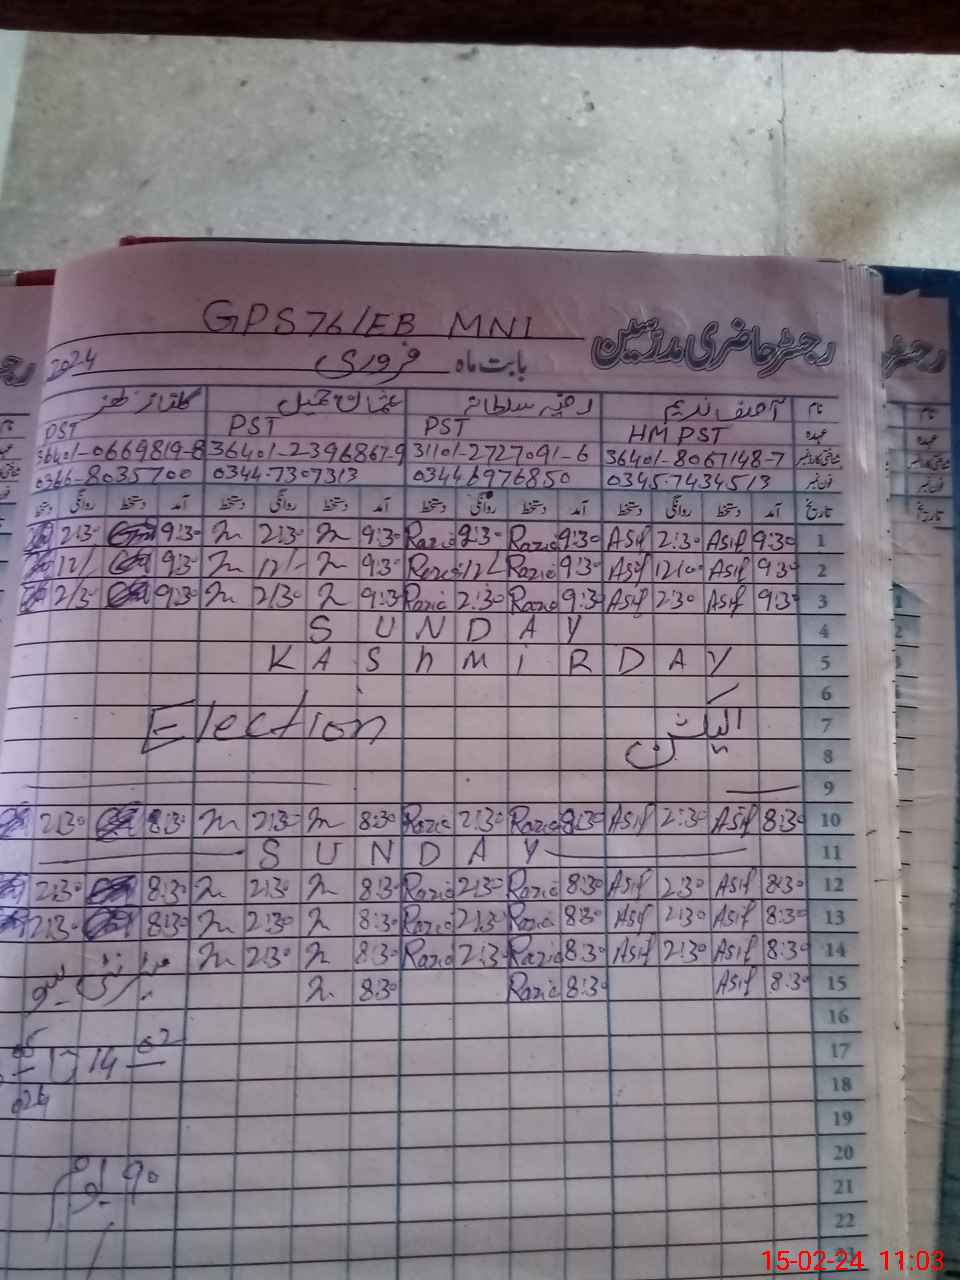 GPS 76/EB MNI
رجسٹر حاضری مدرسین
بابت ماہ فروری 2024
نام آصف ندیم رضیہ سلطانہ عثمان جمیل
عہدہ HM PST PST PST PST
شناختی کارڈ نمبر 36401-8067148-7 31101-2727091-6 36401-2396867-9 36401-0669819-8
فون نمبر 0345-7434513 03446976850 0344-7307313 0346-8035700
تاریخ آمد دستخط روانگی دستخط آمد دستخط روانگی دستخط آمد دستخط روانگی دستخط آمد دستخط روانگی دستخط
1 9:30 Asif 2:30 Asif 9:30 Razia 2:30 Razia 9:30 2:30 9:30 2:30
2 9:30 Asif 12/00 Asif 9:30 Razia 12/- Razia 9:30 12/- 9:30 12/
3 9:30 Asif 2:30 Asif 9:30 Razia 2:30 Razia 9:30 2:30 9:30 2:30
4 SUNDAY
5 KAShMiR DAY
6
7 Election الیکشن
8
9
10 8:30 Asif 2:30 Asif 8:30 Razia 2:30 Razia 8:30 2:30 8:30 2:30
11 SUNDAY
12 8:30 Asif 2:30 Asif 8:30 Razia 2:30 Razia 8:30 2:30 8:30 2:30
13 8:30 Asif 2:30 Asif 8:30 Razia 2:30 Razia 8:30 2:30 8:30 2:30
14 8:30 Asif 2:30 Asif 8:30 Razia 2:30 Razia 8:30 2:30
15 8:30 Asif 8:30 Razia 8:30
16
17 14 تا
18
19
20
21 90 یوم
22
15-02-24 11:03